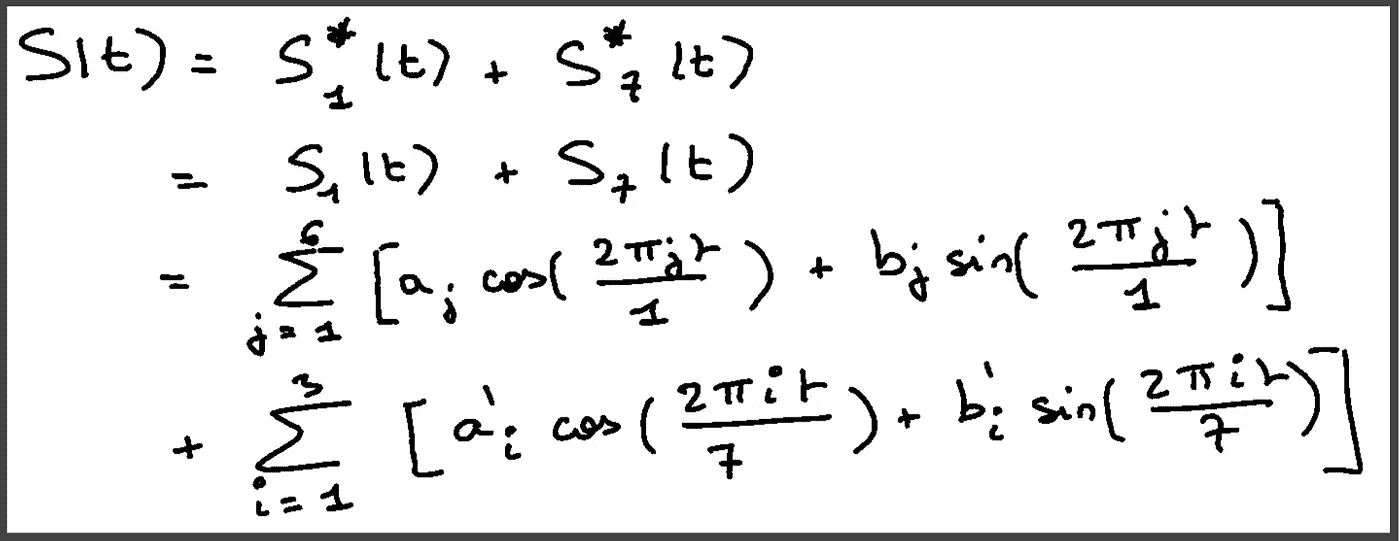 S(t) = S*₁(t) + S*₇(t)
= S₁(t) + S₇(t)
= ∑_{j=1}^{6} [a_j cos(2πjt/1) + b_j sin(2πjt/1)]
+ ∑_{i=1}^{3} [a'_i cos(2πit/7) + b'_i sin(2πit/7)]